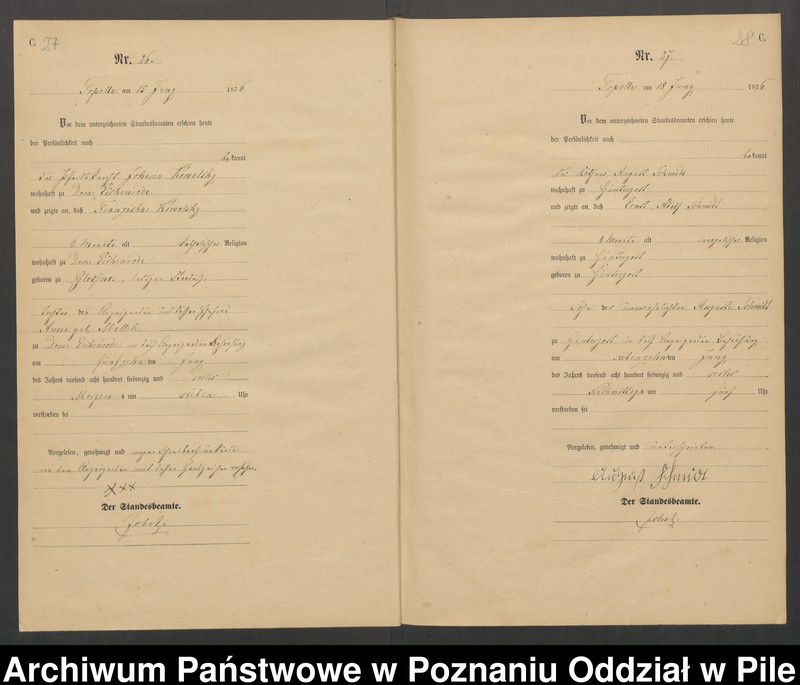 C. 27
Nr. 26.
am 15 Juny 1876
Vor dem unterzeichneten Standesbeamten erschien heute
der Persönlichkeit nach
bekannt
Johann Kowalsky
wohnhaft zu Dom.
und zeigte an, daß Franziska Kowalsky
6 Monate alt katholischer Religion
wohnhaft zu Dom.
geboren zu
Tochter des Anzeigenden und dessen Ehefrau
Anna geb.
zu Dom. in des Anzeigenden Behausung
am fünfzehnten Juny
des Jahres tausend acht hundert siebenzig und sechs
Morgens um sieben Uhr
verstorben sei
Vorgelesen, genehmigt und wegen
von dem Anzeigenden mit dessen Handzeichen versehen.
XXX
Der Standesbeamte.
28 C.
Nr. 27.
am 18 Juny 1876
Vor dem unterzeichneten Standesbeamten erschien heute
der Persönlichkeit nach
bekannt
August Schmidt
wohnhaft zu
und zeigte an, daß Ernst Adolf Schmidt
8 Monate alt evangelischer Religion
wohnhaft zu
geboren zu
Sohn der unverehelichten Auguste Schmidt
zu in des Anzeigenden Behausung
am siebenzehnten Juny
des Jahres tausend acht hundert siebenzig und sechs
Nachmittags um fünf Uhr
verstorben sei
Vorgelesen, genehmigt und unterschrieben
August Schmidt
Der Standesbeamte.
Archiwum Państwowe w Poznaniu Oddział w Pile